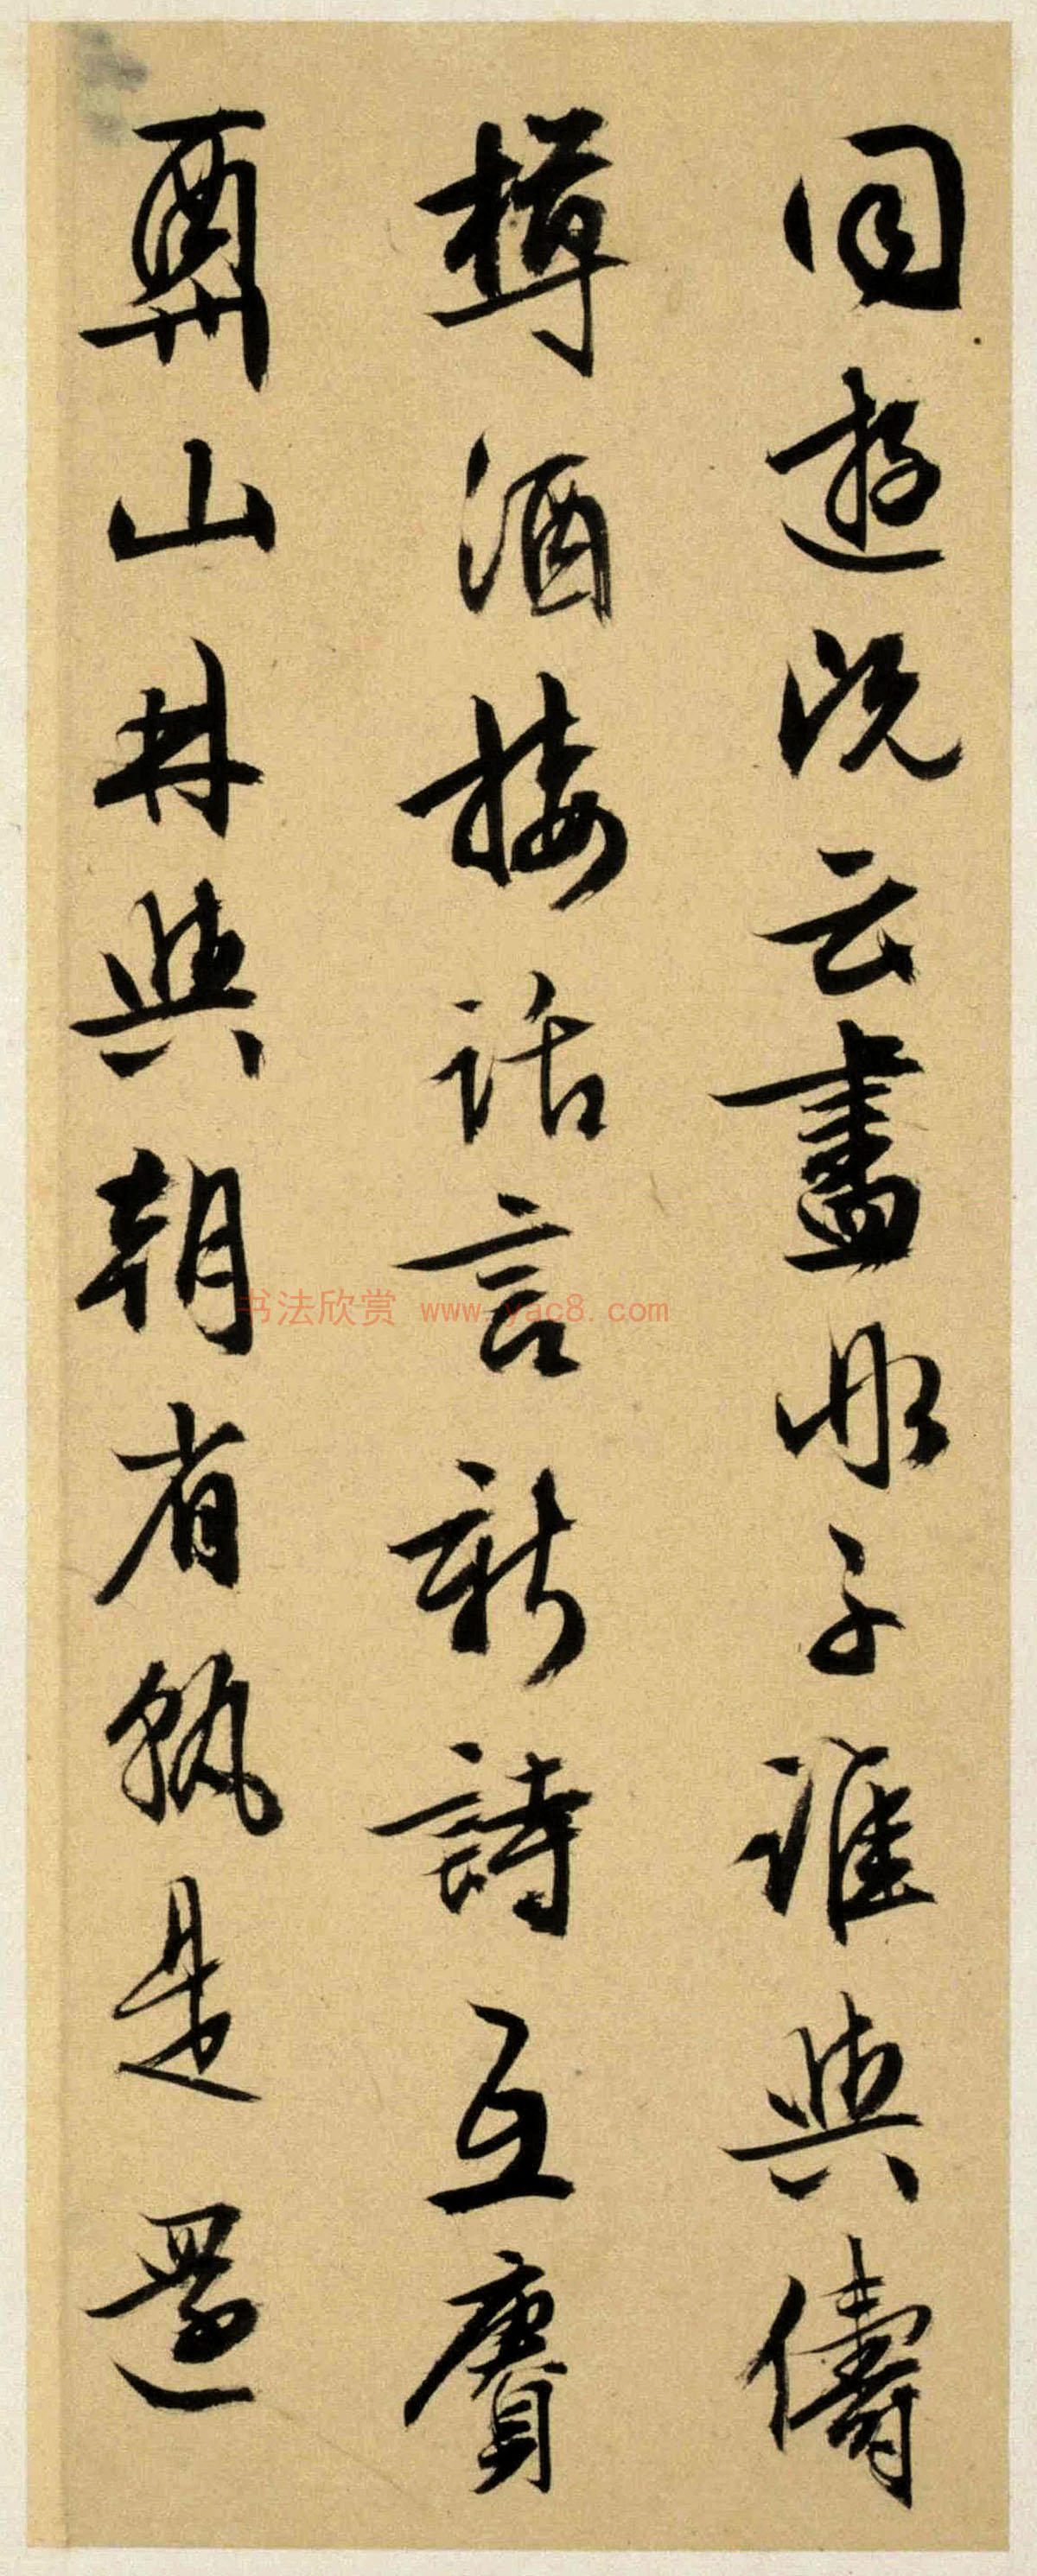 同遊既云盡水子誰與儔
樽酒接話言新詩互賡
酬山林與朝省孰是還
书法欣赏 www.yac8.com